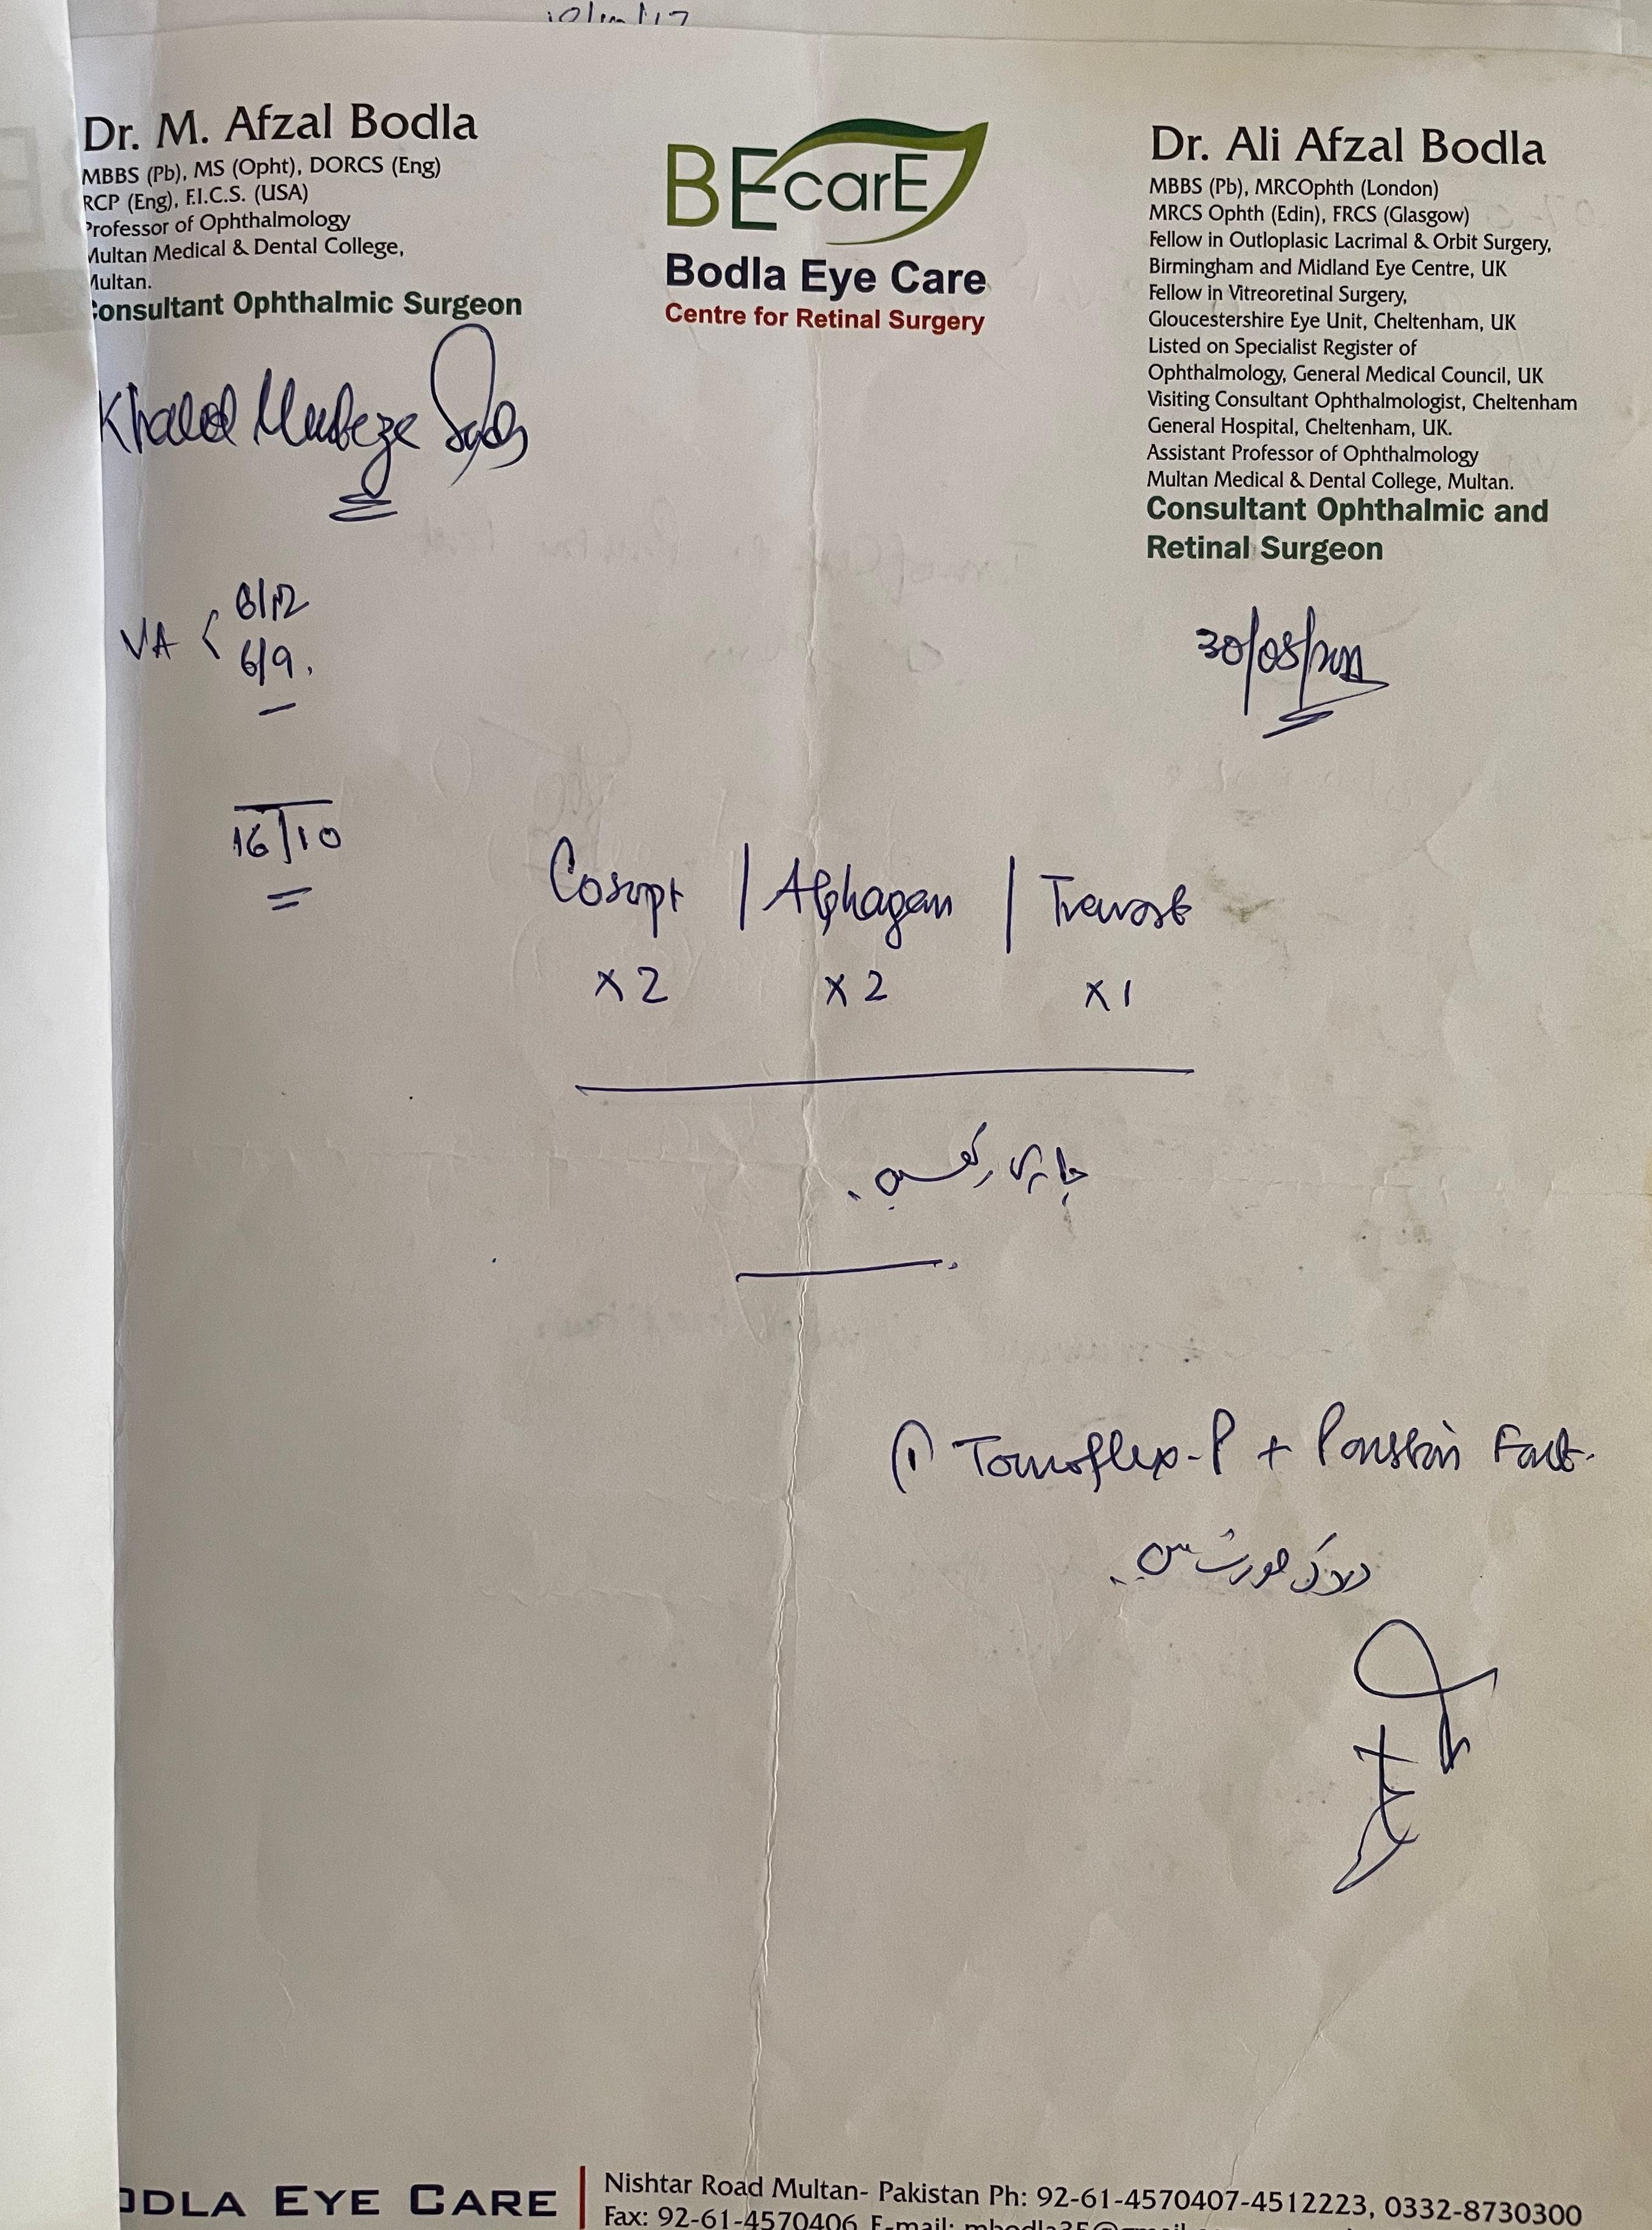 Dr. M. Afzal Bodla
MBBS (Pb), MS (Opht), DORCS (Eng)
RCP (Eng), F.I.C.S. (USA)
Professor of Ophthalmology
Multan Medical & Dental College,
Multan.
Consultant Ophthalmic Surgeon
BEcarE
Bodla Eye Care
Centre for Retinal Surgery
Dr. Ali Afzal Bodla
MBBS (Pb), MRCOphth (London)
MRCS Ophth (Edin), FRCS (Glasgow)
Fellow in Outloplasic Lacrimal & Orbit Surgery,
Birmingham and Midland Eye Centre, UK
Fellow in Vitreoretinal Surgery,
Gloucestershire Eye Unit, Cheltenham, UK
Listed on Specialist Register of
Ophthalmology, General Medical Council, UK
Visiting Consultant Ophthalmologist, Cheltenham
General Hospital, Cheltenham, UK.
Assistant Professor of Ophthalmology
Multan Medical & Dental College, Multan.
Consultant Ophthalmic and
Retinal Surgeon
Khalid
VA < 6/12
6/9.
30/08/
16/10
Cosopt | Alphagan | Travost
x 2 x 2 x 1
جاری رکھیں
(1) Tonoflex-P + Ponstan Fort.
درد کی صورت میں
ODLA EYE CARE
Nishtar Road Multan- Pakistan Ph: 92-61-4570407-4512223, 0332-8730300
Fax: 92-61-4570406 E-mail: